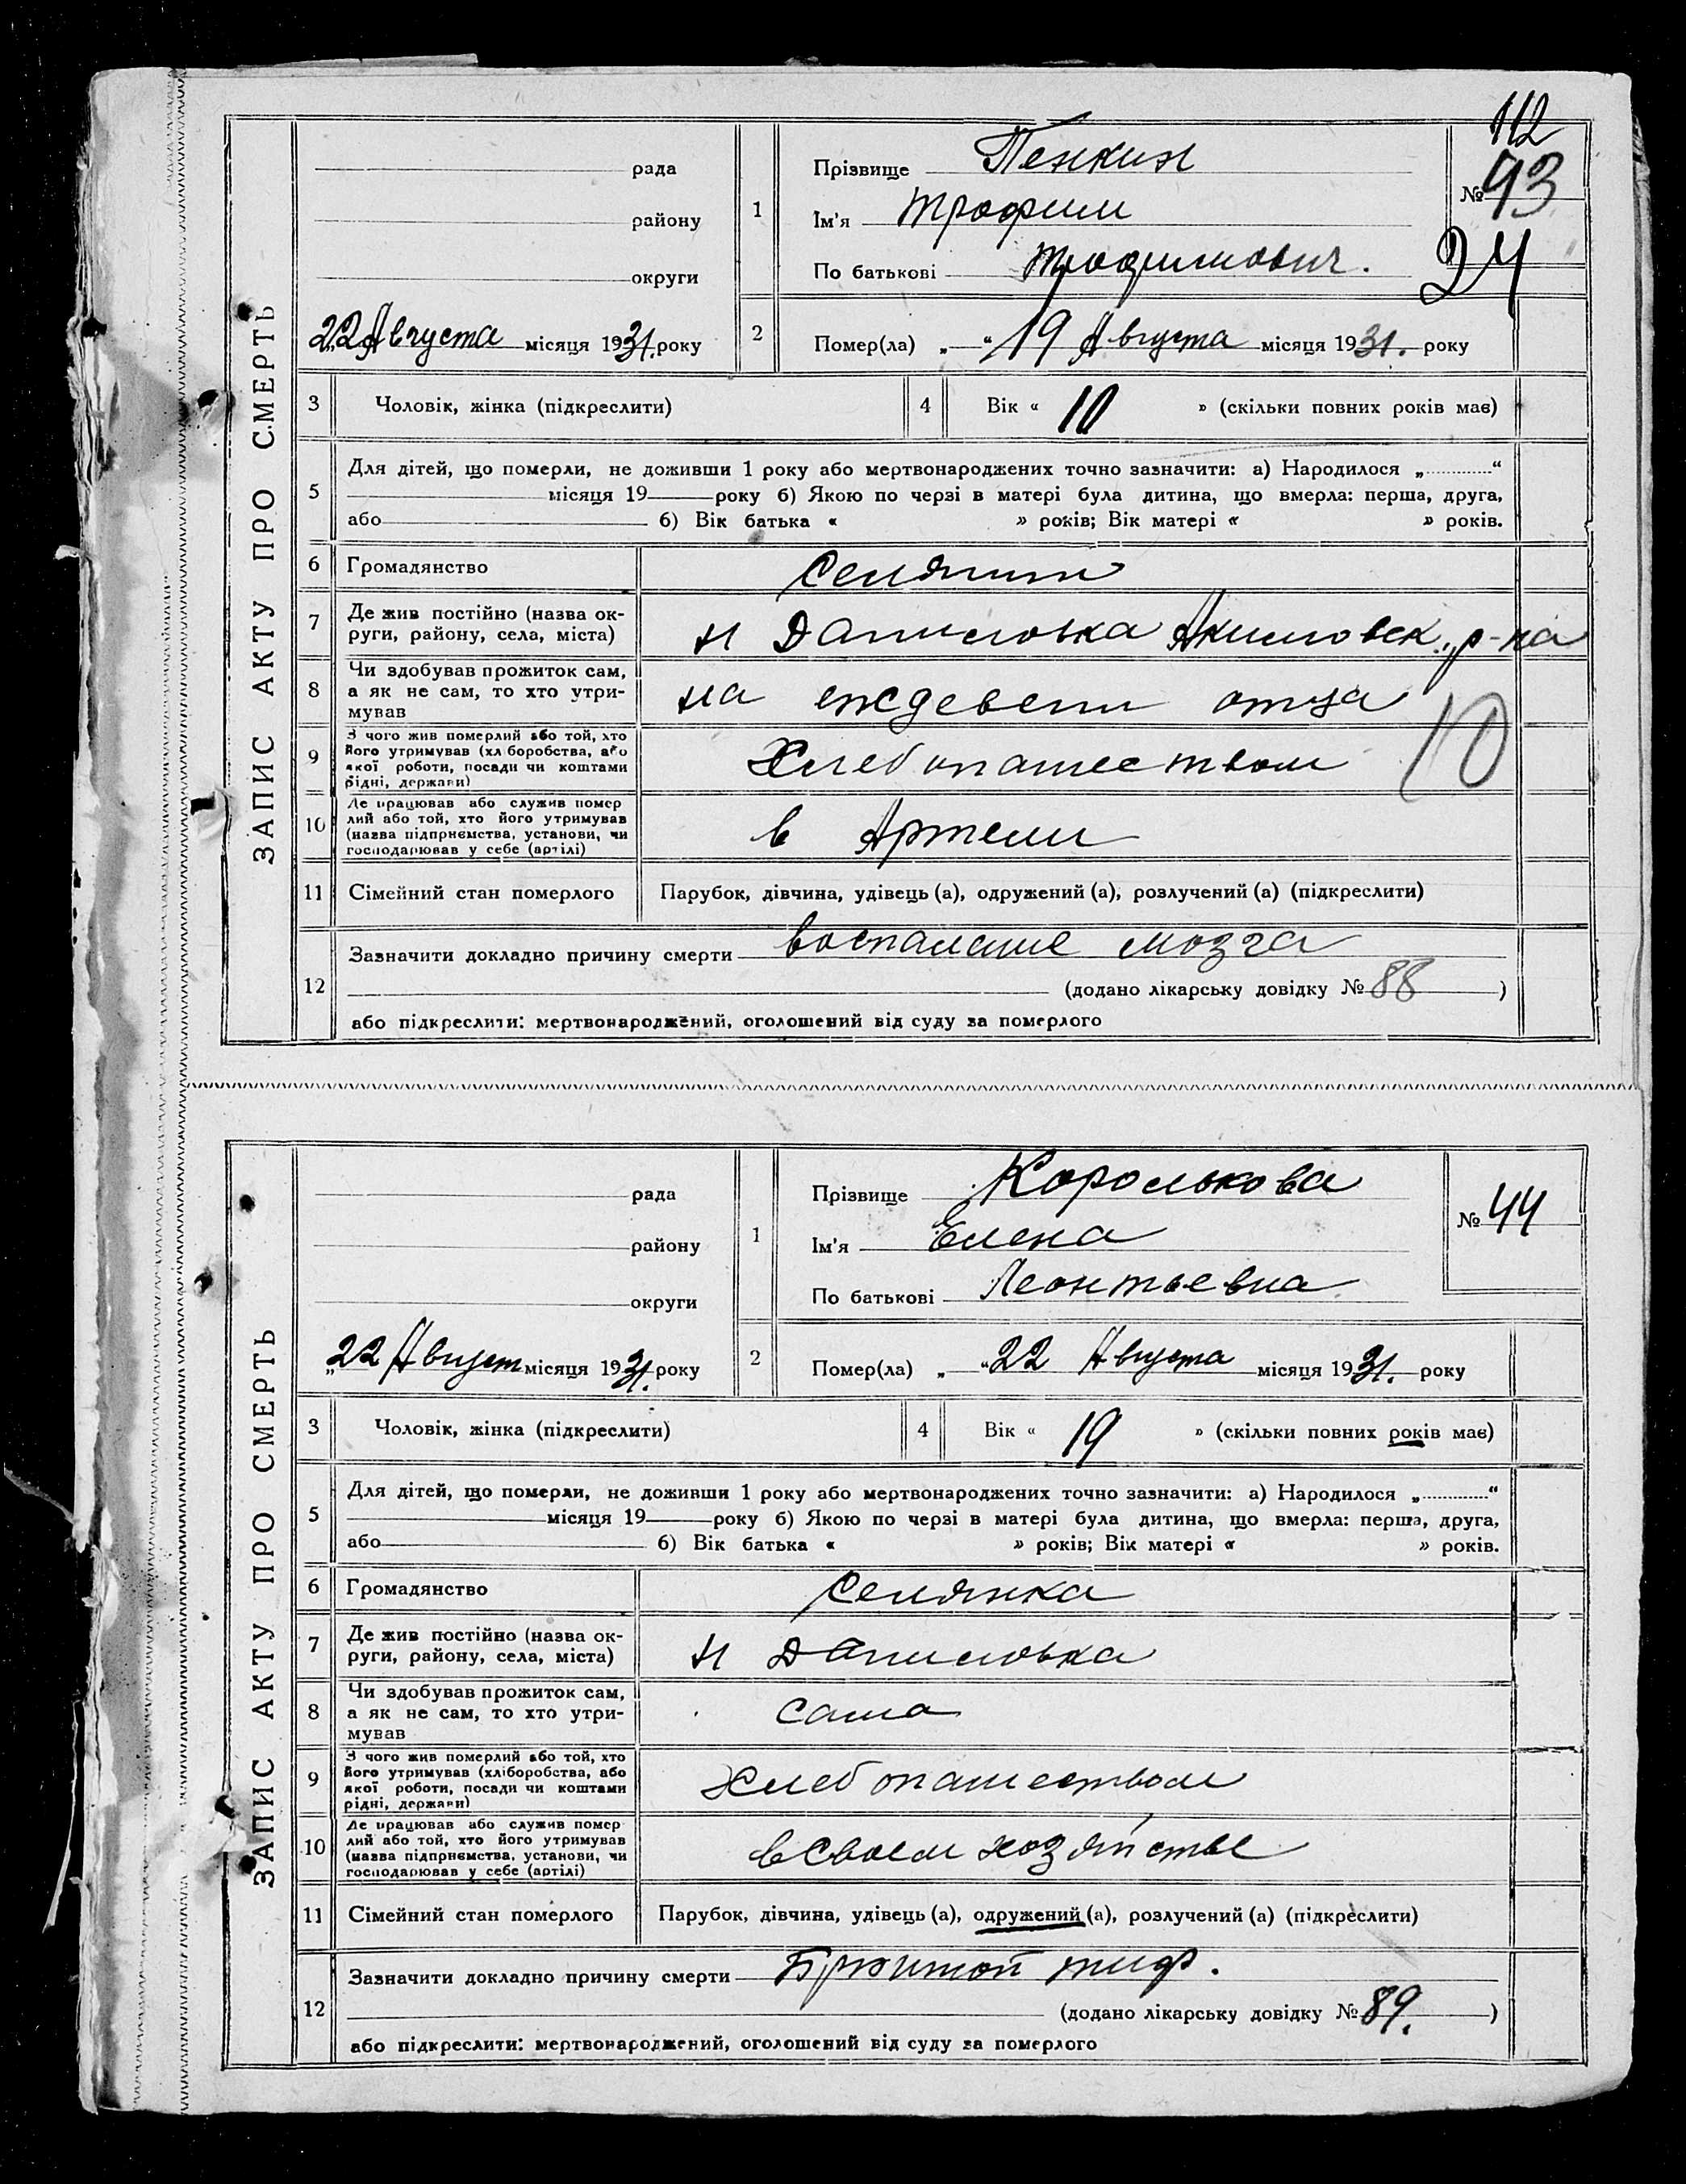 112
ЗАПИС АКТУ ПРО СМЕРТЬ
рада
району
округи
22 Августа місяця 1931. року
1
Прізвище Пенкин
Ім'я Трофим
По батькові Трофимович.
№ 43
24
2
Помер(ла) „ “ 19 Августа місяця 1931. року
3 Чоловік, жінка (підкреслити)
4 Вік « 10 » (скільки повних років має)
5 Для дітей, що померли, не доживши 1 року або мертвонароджених точно зазначити: а) Народилося „ “
місяця 19 року б) Якою по черзі в матері була дитина, що вмерла: перша, друга,
або б) Вік батька « » років; Вік матері « » років.
6 Громадянство Селянин
7 Де жив постійно (назва ок-
руги, району, села, міста) н Даниловка Акимовск. р-на
8 Чи здобував прожиток сам,
а як не сам, то хто утри-
мував на еждевени отца
9 З чого жив померлий або той, хто
його утримував (хліборобства, або
якої роботи, посади чи коштами
рідні, держави) Хлебопашеством
10
10 Де працював або служив помер
лий або той, хто його утримував
(назва підприємства, установи, чи
господарював у себе (артілі) в Артели
11 Сімейний стан померлого Парубок, дівчина, удівець (а), одружений (а), розлучений (а) (підкреслити)
12 Зазначити докладно причину смерти воспаление мозга
(додано лікарську довідку № 88 )
або підкреслити: мертвонароджений, оголошений від суду за померлого
ЗАПИС АКТУ ПРО СМЕРТЬ
рада
району
округи
„22 Август місяця 1931. року
1
Прізвище Королькова
Ім'я Елена
По батькові Леонтьевна
№ 44
2
Помер(ла) „ “ 22 Августа місяця 1931. року
3 Чоловік, жінка (підкреслити)
4 Вік « 19 » (скільки повних років має)
5 Для дітей, що померли, не доживши 1 року або мертвонароджених точно зазначити: а) Народилося „ “
місяця 19 року б) Якою по черзі в матері була дитина, що вмерла: перша, друга,
або б) Вік батька « » років; Вік матері « » років.
6 Громадянство Селянка
7 Де жив постійно (назва ок-
руги, району, села, міста) н Даниловка
8 Чи здобував прожиток сам,
а як не сам, то хто утри-
мував сама
9 З чого жив померлий або той, хто
його утримував (хліборобства, або
якої роботи, посади чи коштами
рідні, держави) Хлебопашеством
10 Де працював або служив помер
лий або той, хто його утримував
(назва підприємства, установи, чи
господарював у себе (артілі) в своем хозяйстве
11 Сімейний стан померлого Парубок, дівчина, удівець (а), одружений (а), розлучений (а) (підкреслити)
12 Зазначити докладно причину смерти Брюшной тиф.
(додано лікарську довідку № 89. )
або підкреслити: мертвонароджений, оголошений від суду за померлого